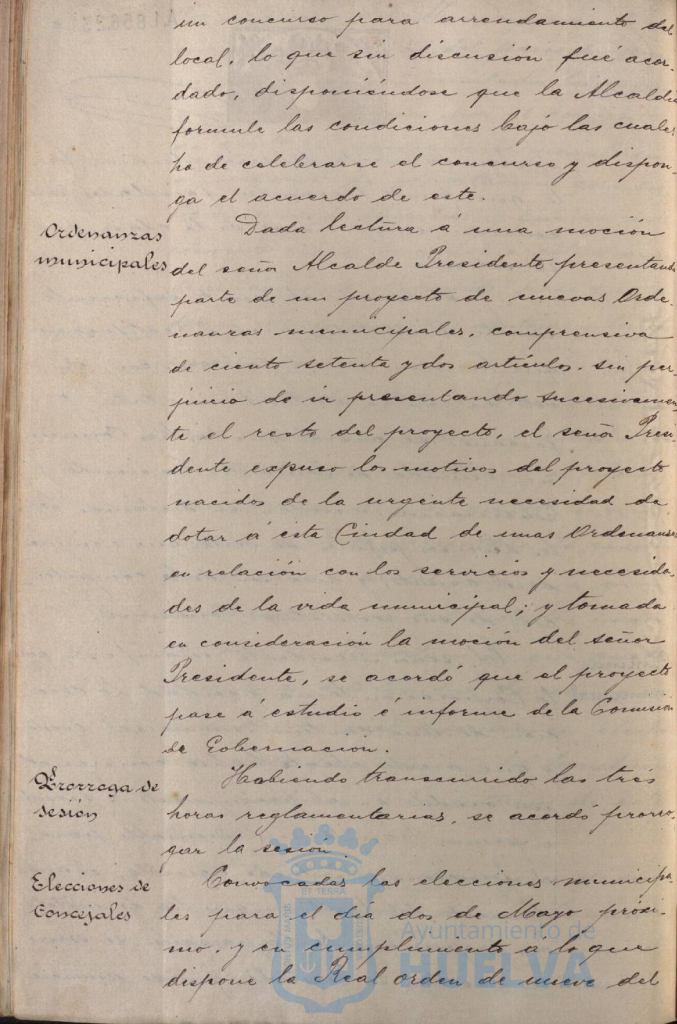 un concurso para arrendamiento del
local, lo que sin discusión fué acor-
dado, disponiéndose que la Alcaldía
formule las condiciones bajo las cuales
ha de celebrarse el concurso y dispon-
ga el acuerdo de este.
Ordenanzas
municipales
Dada lectura á una moción
del señor Alcalde Presidente presentando
parte de un proyecto de nuevas Orde-
nanzas municipales, comprensiva
de ciento setenta y dos artículos, sin per-
juicio de ir presentando sucesivamen-
te el resto del proyecto, el señor Presi-
dente expuso los motivos del proyecto
nacidos de la urgente necesidad de
dotar á esta Ciudad de unas Ordenanzas
en relación con los servicios y necesida-
des de la vida municipal; y tomada
en consideración la moción del señor
Presidente, se acordó que el proyecto
pase á estudio é informe de la Comisión
de Gobernación.
Prorroga de
sesión
Habiendo transcurrido las tres
horas reglamentarias, se acordó prorro-
gar la sesión.
Elecciones de
Concejales
Convocadas las elecciones municipa-
les para el día dos de Mayo próxi-
mo, y en cumplimiento a lo que
dispone la Real orden de nueve del
Ayuntamiento de
HUELVA